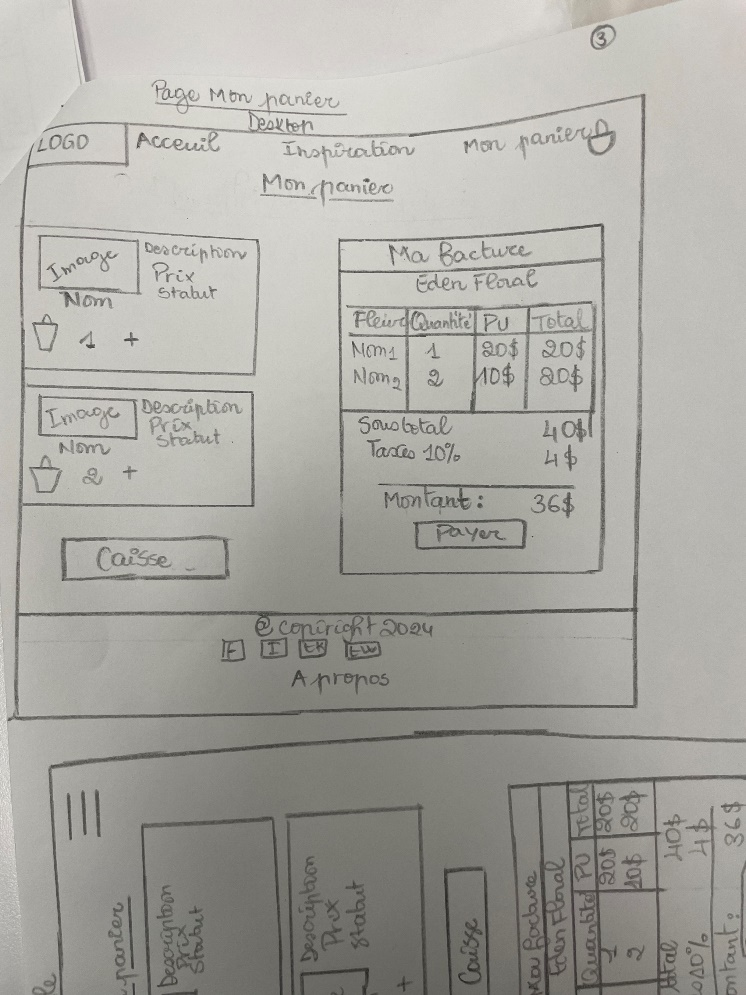 3
Page Mon panier
Desktop
LOGO Acceuil Inspiration Mon panier
Mon panier
Image Description
Prix
Statut
Nom
1 +
Image Description
Prix
Statut
Nom
2 +
Caisse
Ma facture
Eden Floral
Fleurs Quantité PU Total
Nom1 1 20$ 20$
Nom2 2 10$ 20$
Sous total 40$
Taxes 10% 4$
Montant: 36$
Payer
@ copiright 2024
F I
A propos
panier
Description
Prix
Statut
Description
Prix
Statut
+
Caisse
Ma facture
Eden Floral
Quantité PU Total
1 20$ 20$
2 10$ 20$
total 40$
10% 4$
ontant: 36$